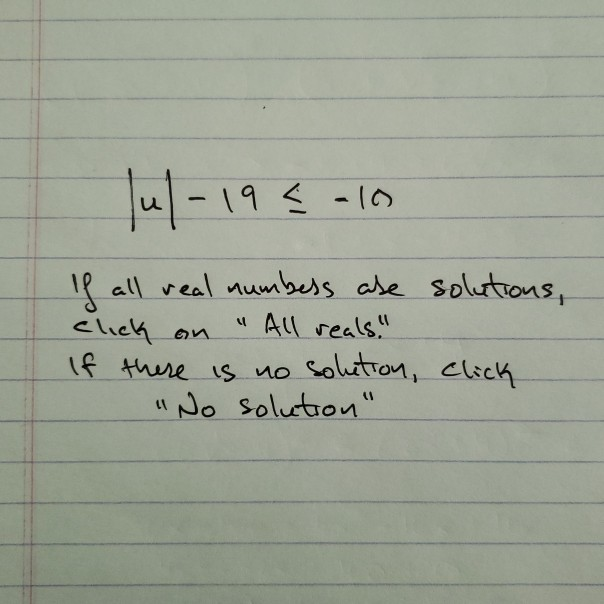 |u| - 19 ≤ -10
If all real numbers are solutions,
click on "All reals."
If there is no solution, click
"No solution"